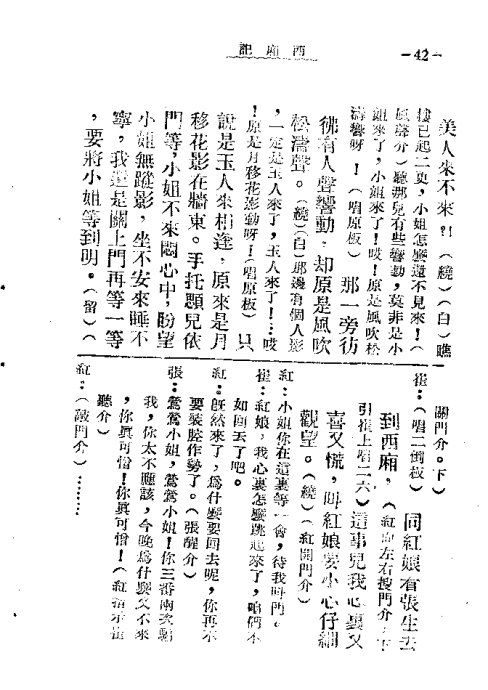 西廂記
—42—
美人來不來?!(繞)(白)瞧
樓已起二更,小姐怎麼還不見來!(
風聲介)聽那兒有些響動,莫非是小
姐來了,小姐來了!哎!原是風吹松
濤響呀!(唱原板)那一旁彷
彿有人聲響動,却原是風吹
松濤聲。(繞)(白)那邊有個人影
,一定是玉人來了,玉人來了!…哎
!原是月移花影動呀!(唱原板)只
說是玉人來相逢,原來是月
移花影在牆東。手托顋兒依
門等,小姐不來悶心中,盼望
小姐無蹤影,坐不安來睡不
寧,我還是關上門再等一等
,要將小姐等到明。(留)(
關門介。下)
崔:(唱二倒板)同紅娘看張生去
到西廂,(紅向左右捜門介,下
引崔上唱二六)這事兒我心裏又
喜又慌,叫紅娘要小心仔細
觀望。(繞)(紅開門介)
紅:小姐你在這裏等一會,待我叫門。
崔:紅娘,我心裏怎麼跳起來了,咱們不
如回去了吧。
紅:旣然來了,爲什麼要回去呢,你再不
要裝腔作勢了。(張醒介)
張:鶯鶯小姐,鶯鶯小姐!你三番兩次騙
我,你太不應該,今晚爲什麼又不來
,你眞可惜!你眞可惜!(紅指示崔
聽介)
紅:(敲門介)………